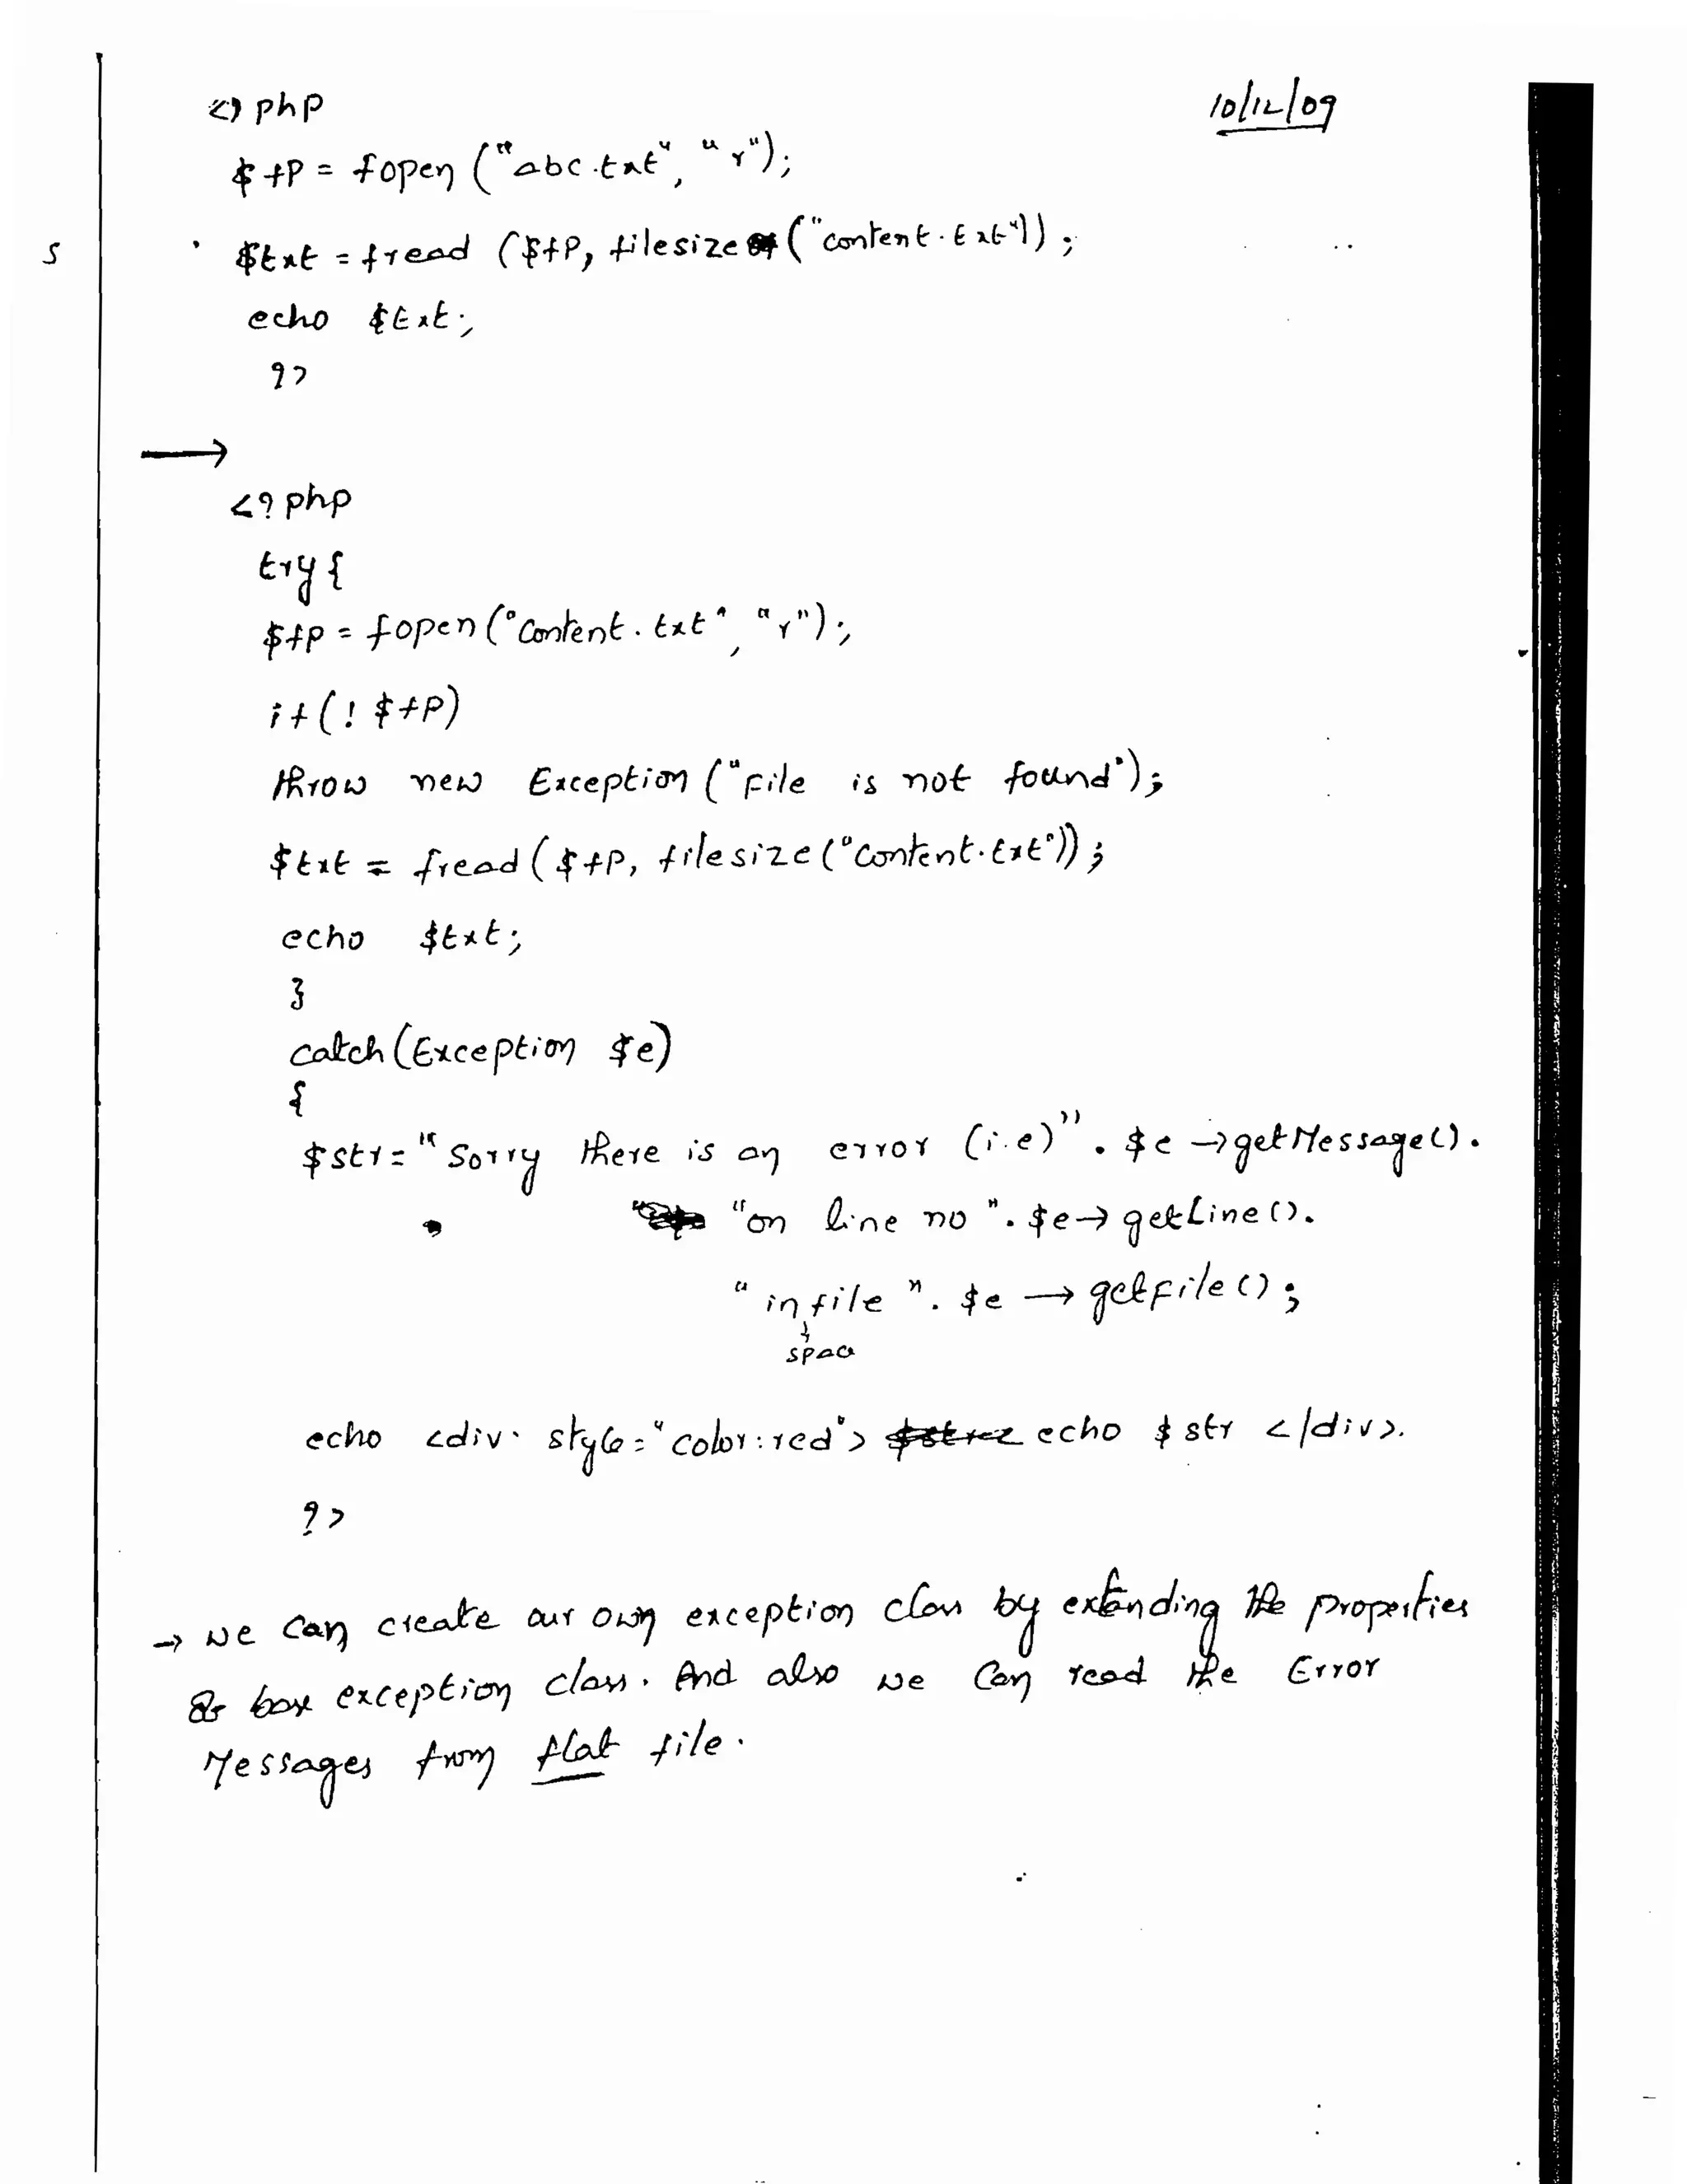 10/12/09
<? php
$fp = fopen ("abc.txt", "r");
s
$txt = fread ($fp, filesize ("content.txt"));
echo $txt;
?>
→
<? php
try {
$fp = fopen ("content.txt", "r");
if (! $fp)
throw new Exception ("File is not found");
$txt = fread ($fp, filesize ("content.txt"));
echo $txt;
}
catch (Exception $e)
{
$str = "Sorry there is an error (i.e)" . $e → getMessage() .
"on line no ". $e → getLine ().
" in file ". $e → getFile () ;
space
echo <div style = "color:red"> echo $str </div>.
?>
→ We can create our own exception class by extending the properties
exception class. And also we can read the Error
Messages from flat file.